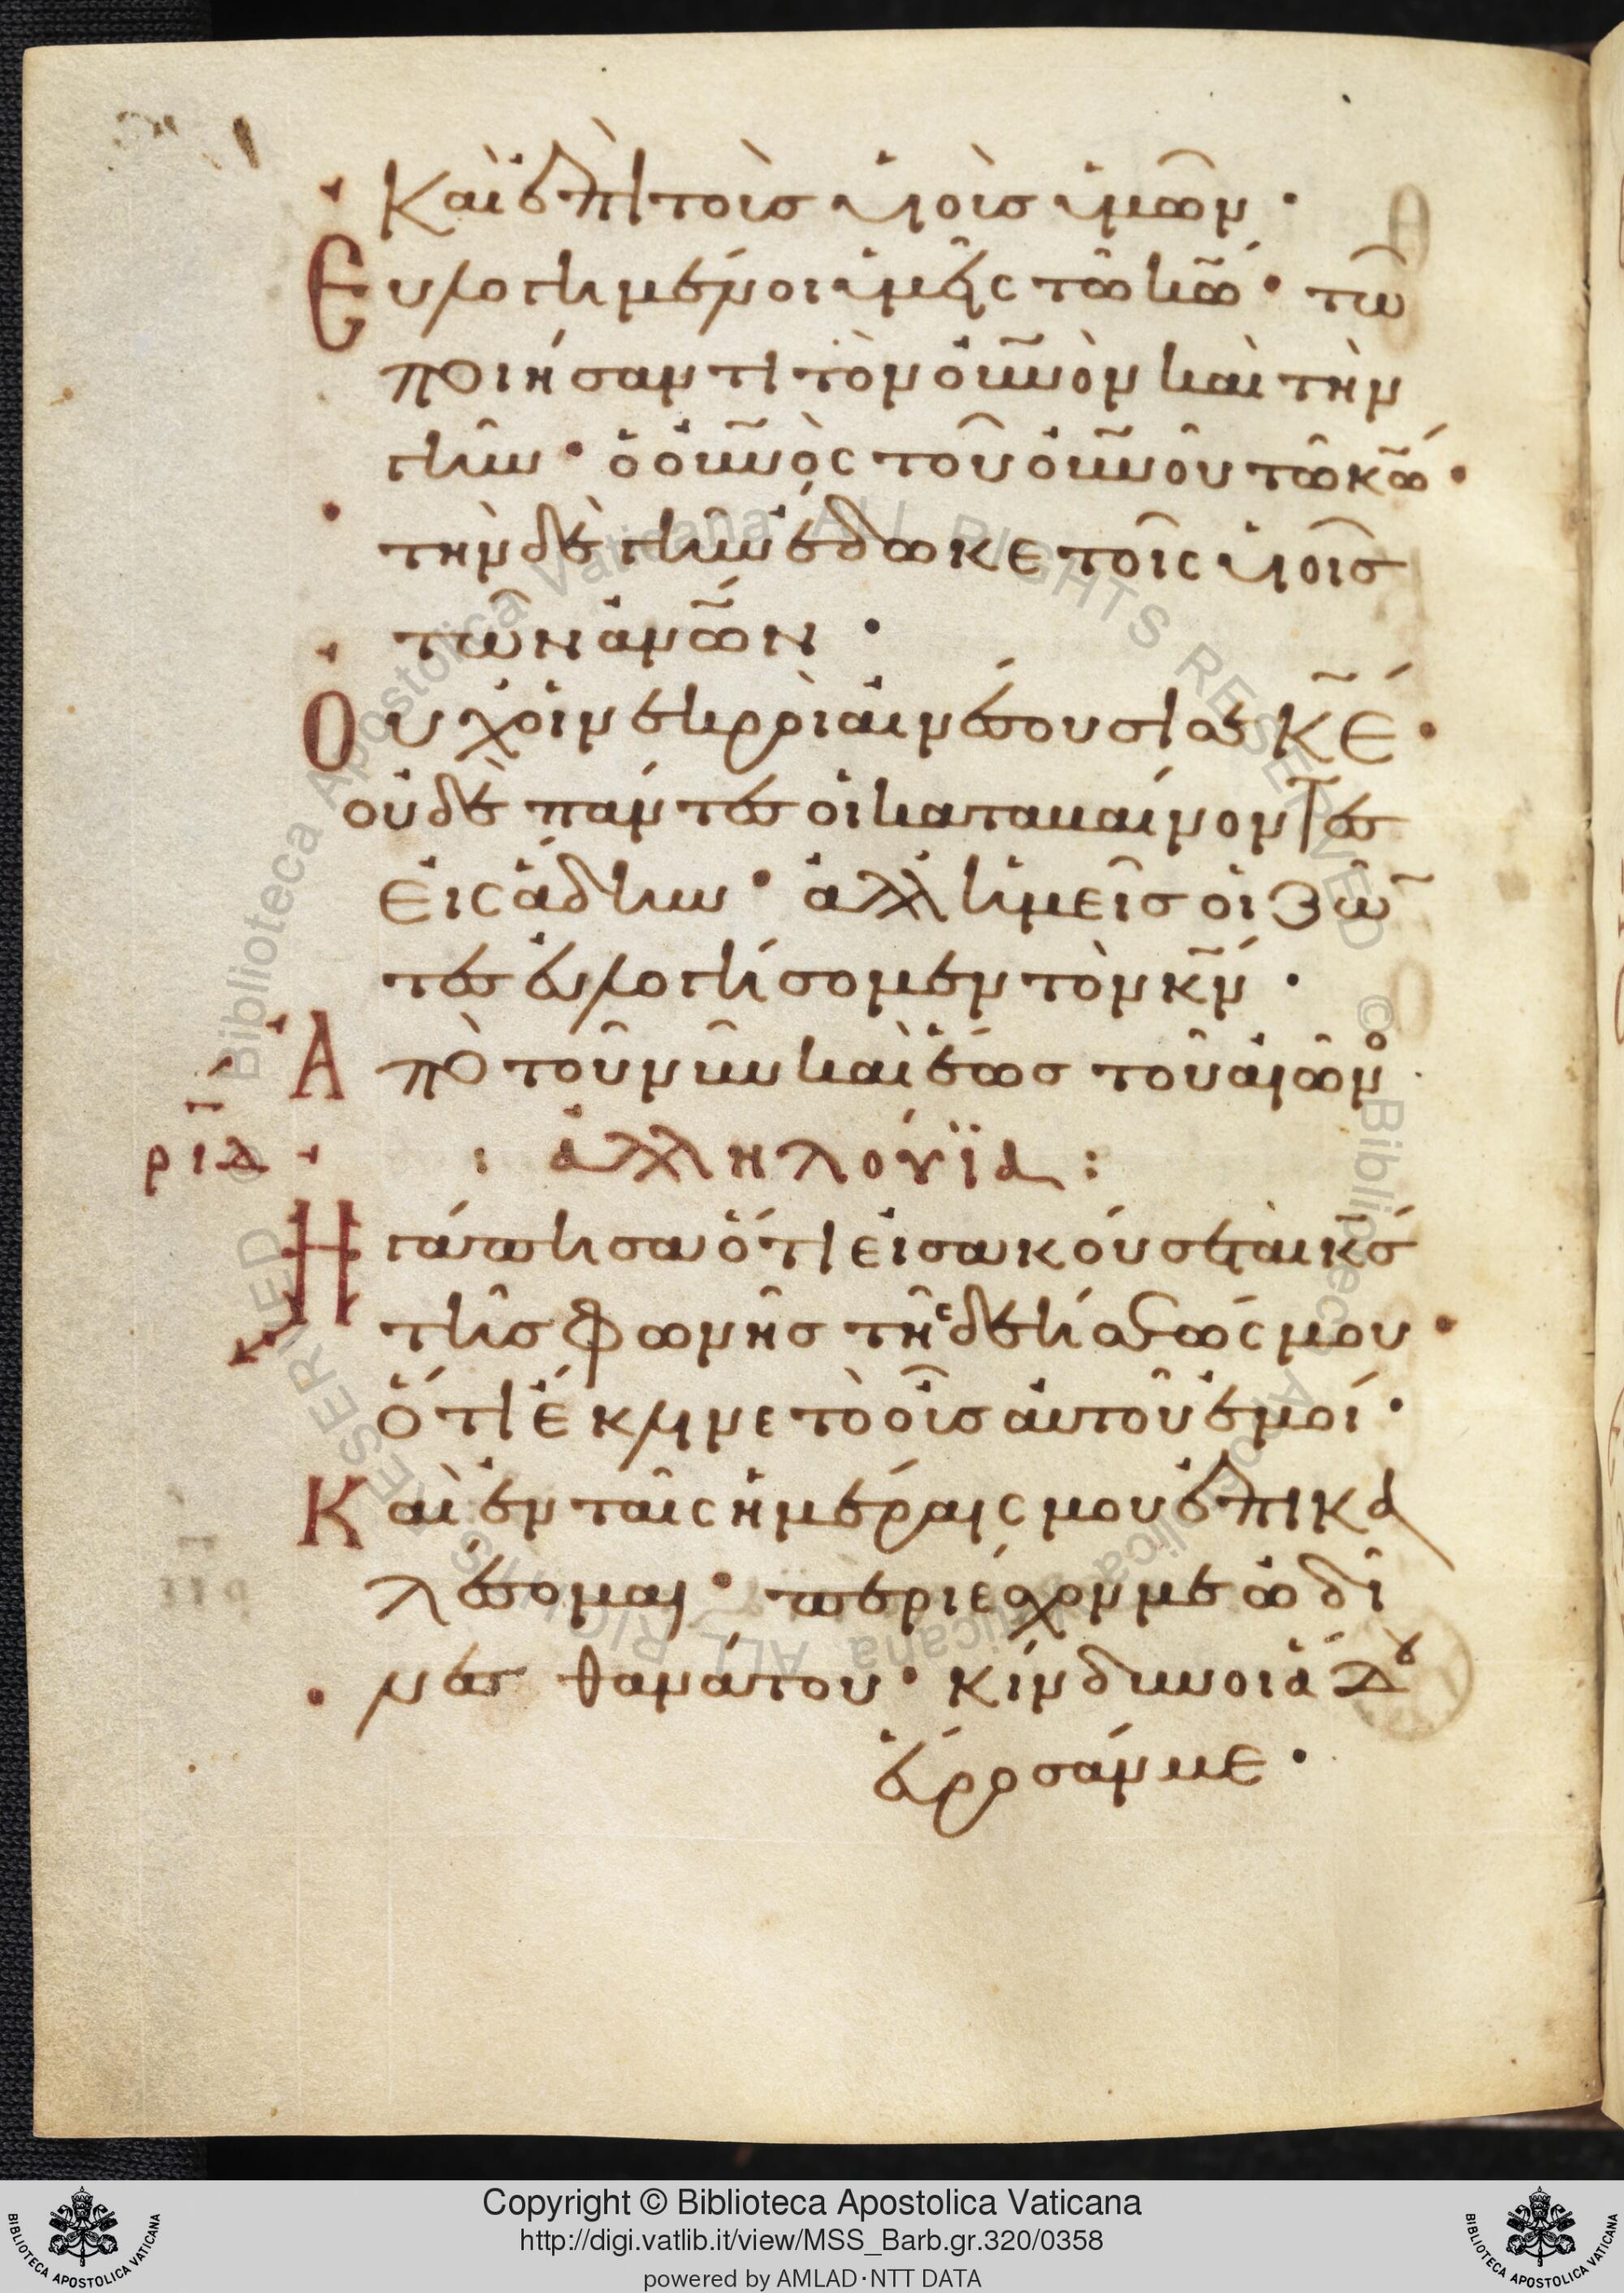 Καὶ ἐπὶ τοὺς υἱοὺς ὑμῶν ·
Ευλογημένοι ὑμεῖς τῶ κῶ · τῶ
ποιήσαντι τὸν οὐνὸν καὶ τὴν
γῆν · ὁ οὐνὸς τοῦ οὐνοῦ τῶ κῶ ·
τὴν δὲ γῆν ἔδωκε τοῖς υἱοῖς
τῶν ἀνῶν ·
Ουχ οἱ νεκροὶ αἰνέσουσί σε κε ·
οὐδὲ πάντες οἱ καταβαίνοντες
εἰς ἅδην · ἀλλ ἡμεῖς οἱ ζῶ
τες εὐλογήσομεν τὸν κν ·
Απὸ τοῦ νῦν καὶ ἕως τοῦ αἰῶνο
ριδ : ἀλληλούϊα :
Ηγάπησα ὅτι εἰσακούσεται κς
τῆς φωνῆς τῆς δεήσεώς μου ·
ὅτι ἔκλινε τὸ οὖς αὐτοῦ ἐμοί ·
Καὶ ἐν ταῖς ἡμέραις μου ἐπικα
λέσομαι · περιέσχον με ὠδῖ
νες θανάτου · κίνδυνοι ἅδου
εὕροσάν με ·
Copyright © Biblioteca Apostolica Vaticana
http://digi.vatlib.it/view/MSS_Barb.gr.320/0358
powered by AMLAD·NTT DATA